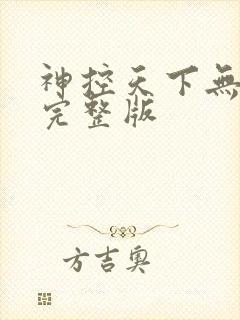 神控天下無
完整版
方吉奥